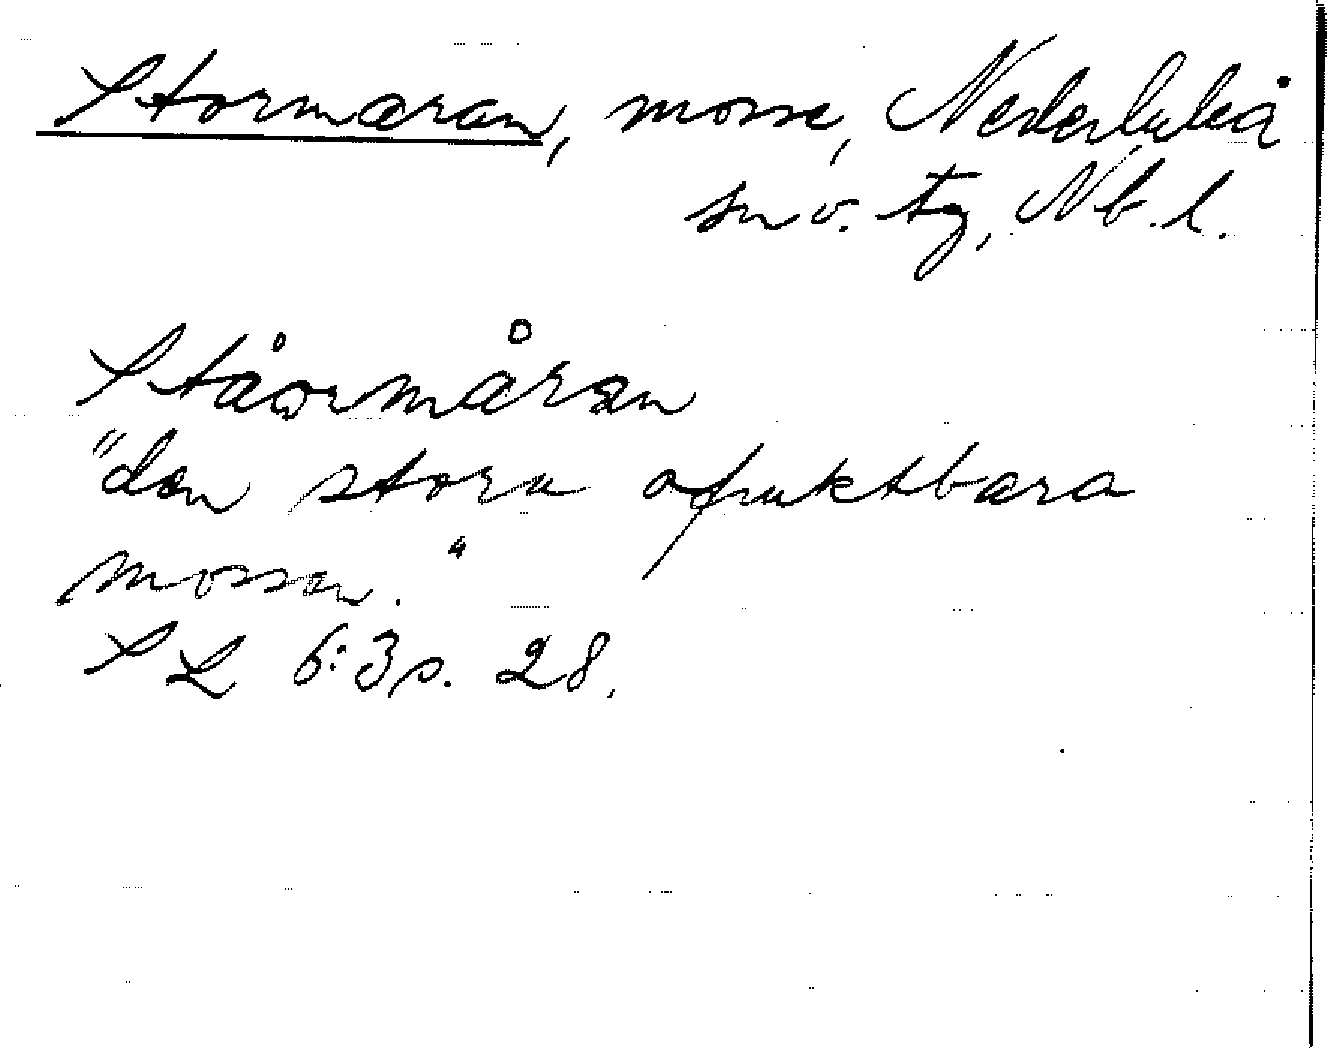 Stormæran, mosse, Nederluleå
sn o. tg, Nb. l.
Ståormåran
"den stora ofruktbara
mossen."
SL 6:3 s. 28.